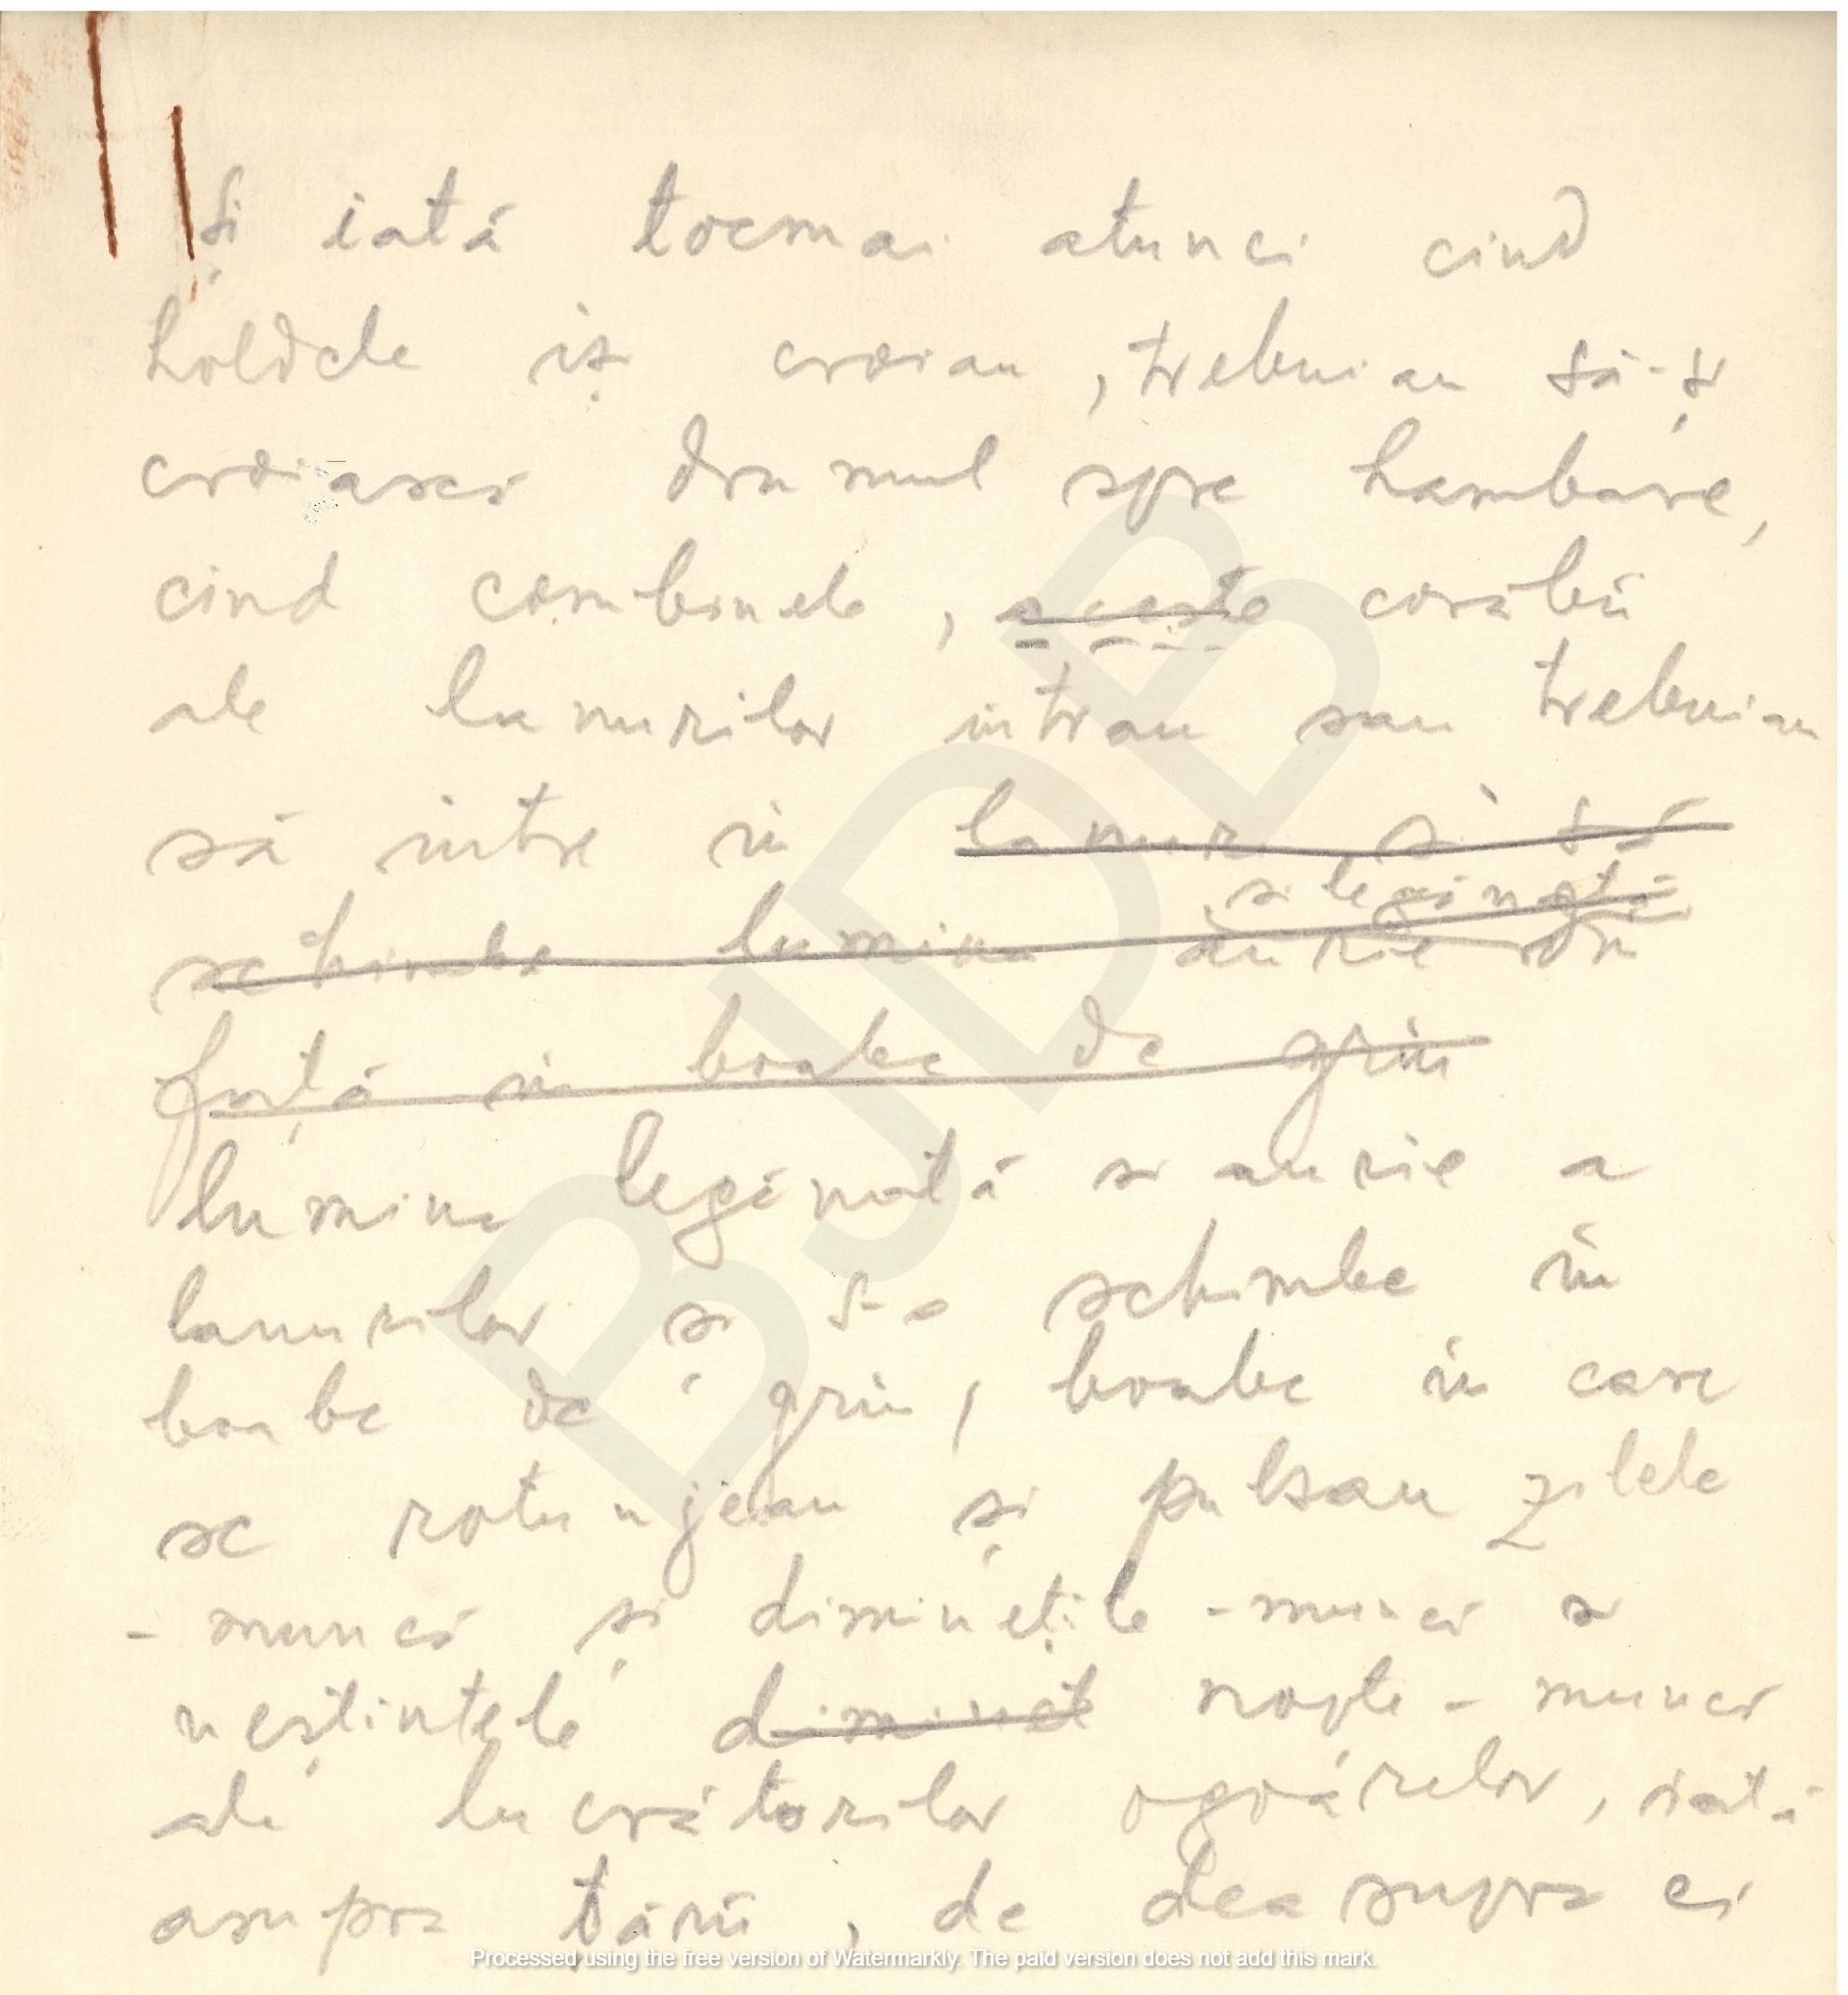 Și iată tocmai atunci cînd
holdele iși croiau, trebuiau să-și
croiască drumul spre hambare,
cind combinele, aceste corăbii
ale lanurilor intrau sau trebuiau
să intre in lanuri și să
și legănată
schimbe lumina aurie din
forță in boabe de grîu
lumina legănată și aurie a
lanurilor și s-o schimbe în
boabe de grîu, boabe in care
se rotunjeau și pulsau zilele
- muncă și diminețile - muncă și
neștiutele diminet nopțile - muncă
ale lucrătorilor ogoarelor, iată
asupra țării, de deasupra ei
BJDB
Processed using the free version of Watermarkly. The paid version does not add this mark.